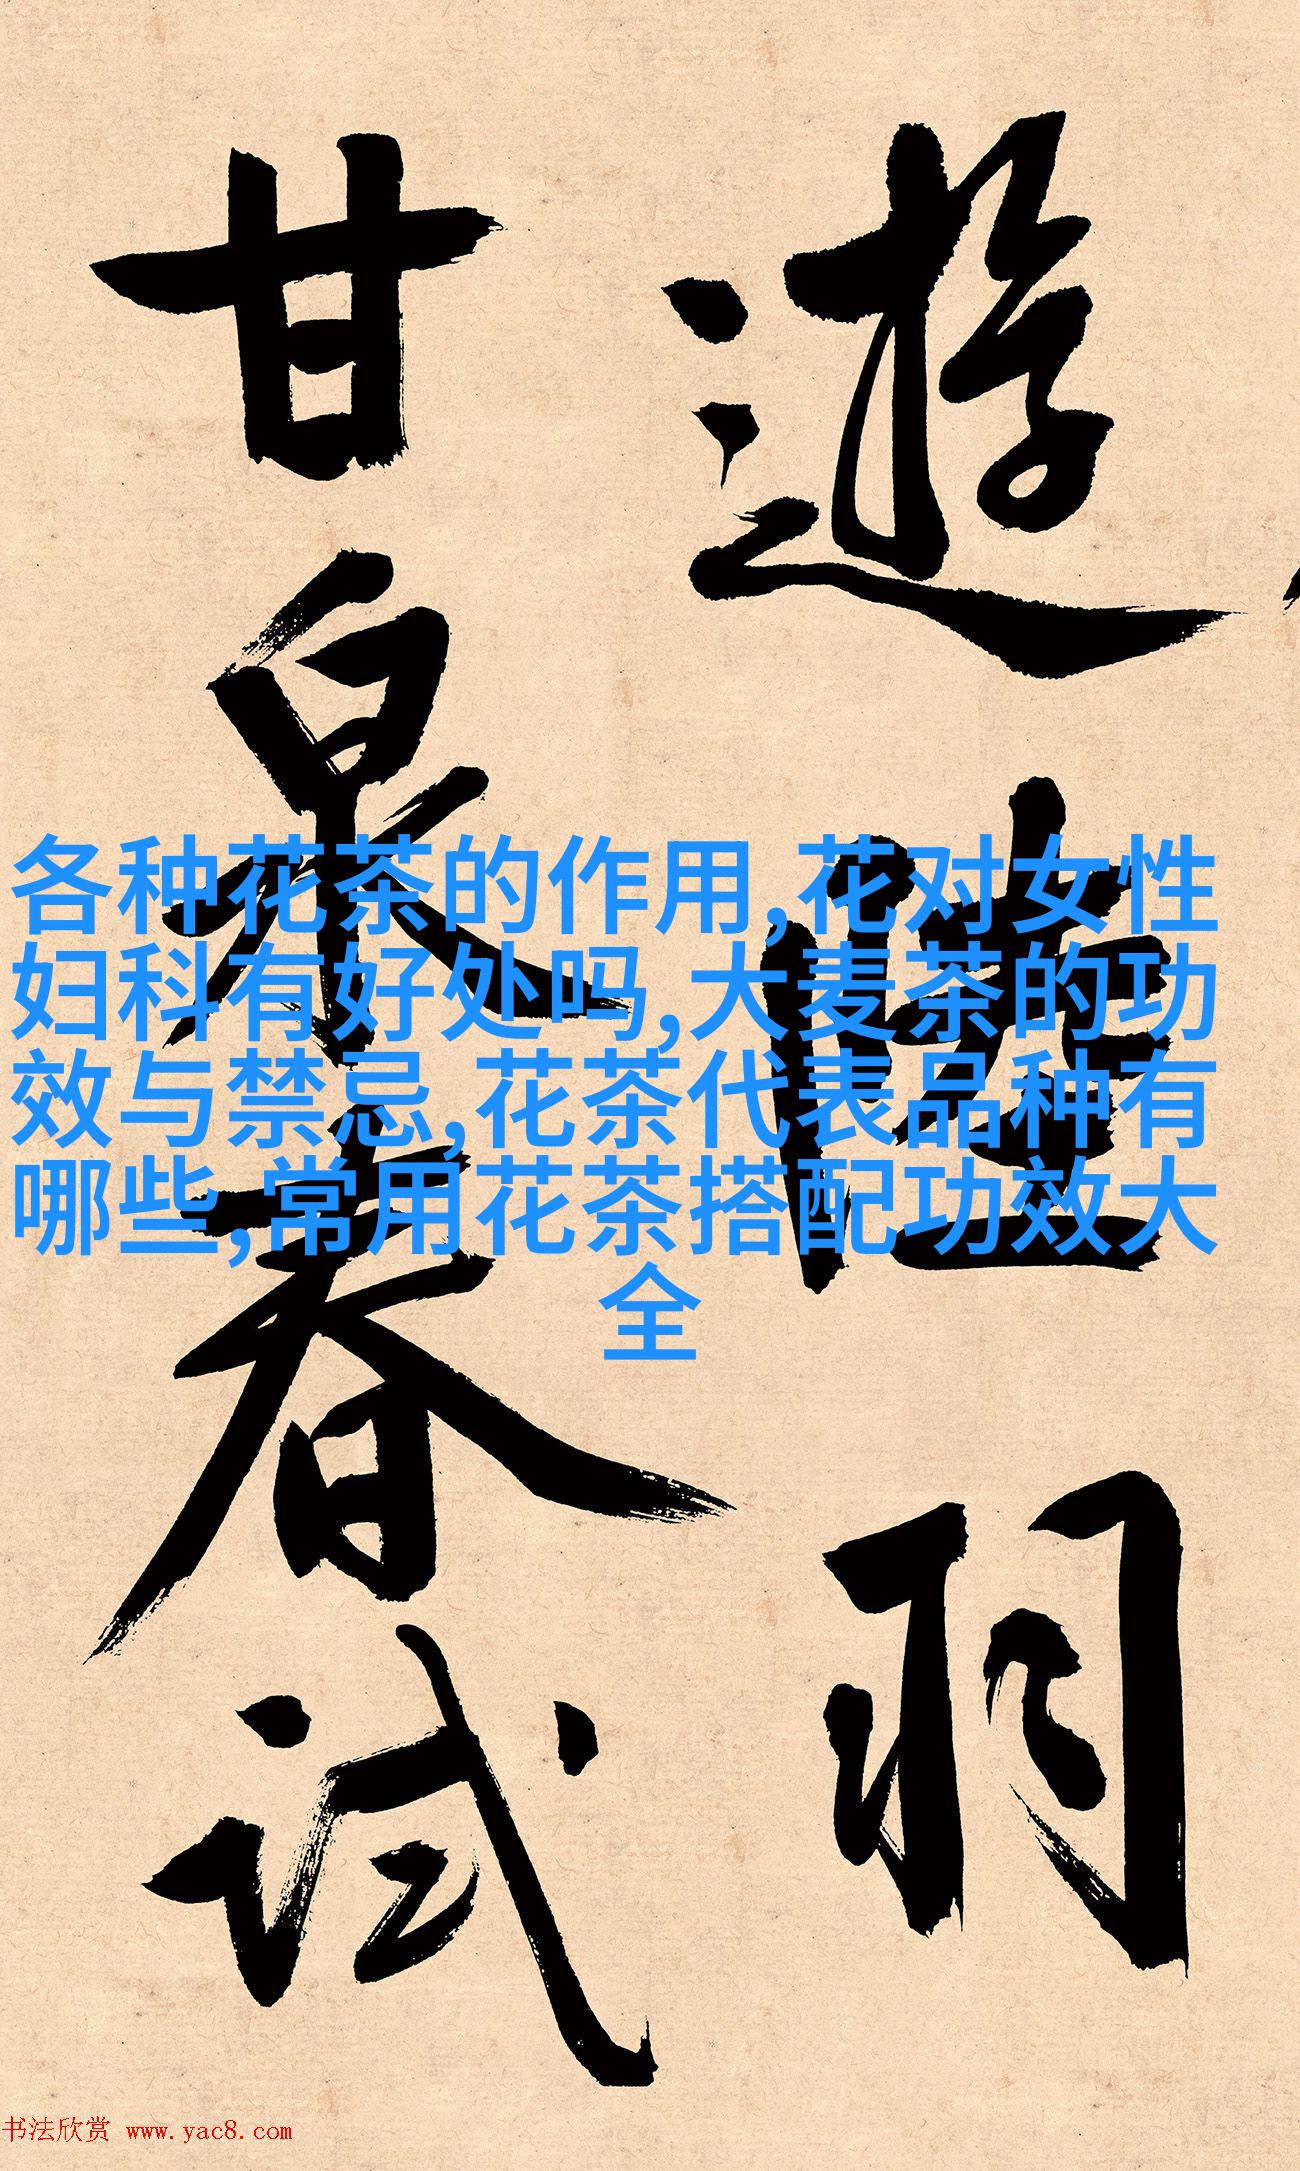 遊陸羽
甘泉春試
各种花茶的作用,花对女性
妇科有好处吗,大麦茶的功
效与禁忌,花茶代表品种有
哪些,常用花茶搭配功效大
全
书法欣赏 www.yac8.com